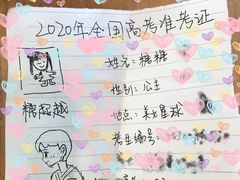 2020年全国高考准考证
姓名:糖糖
性别:公主
地点:美女星球
糖超甜
考生编号: